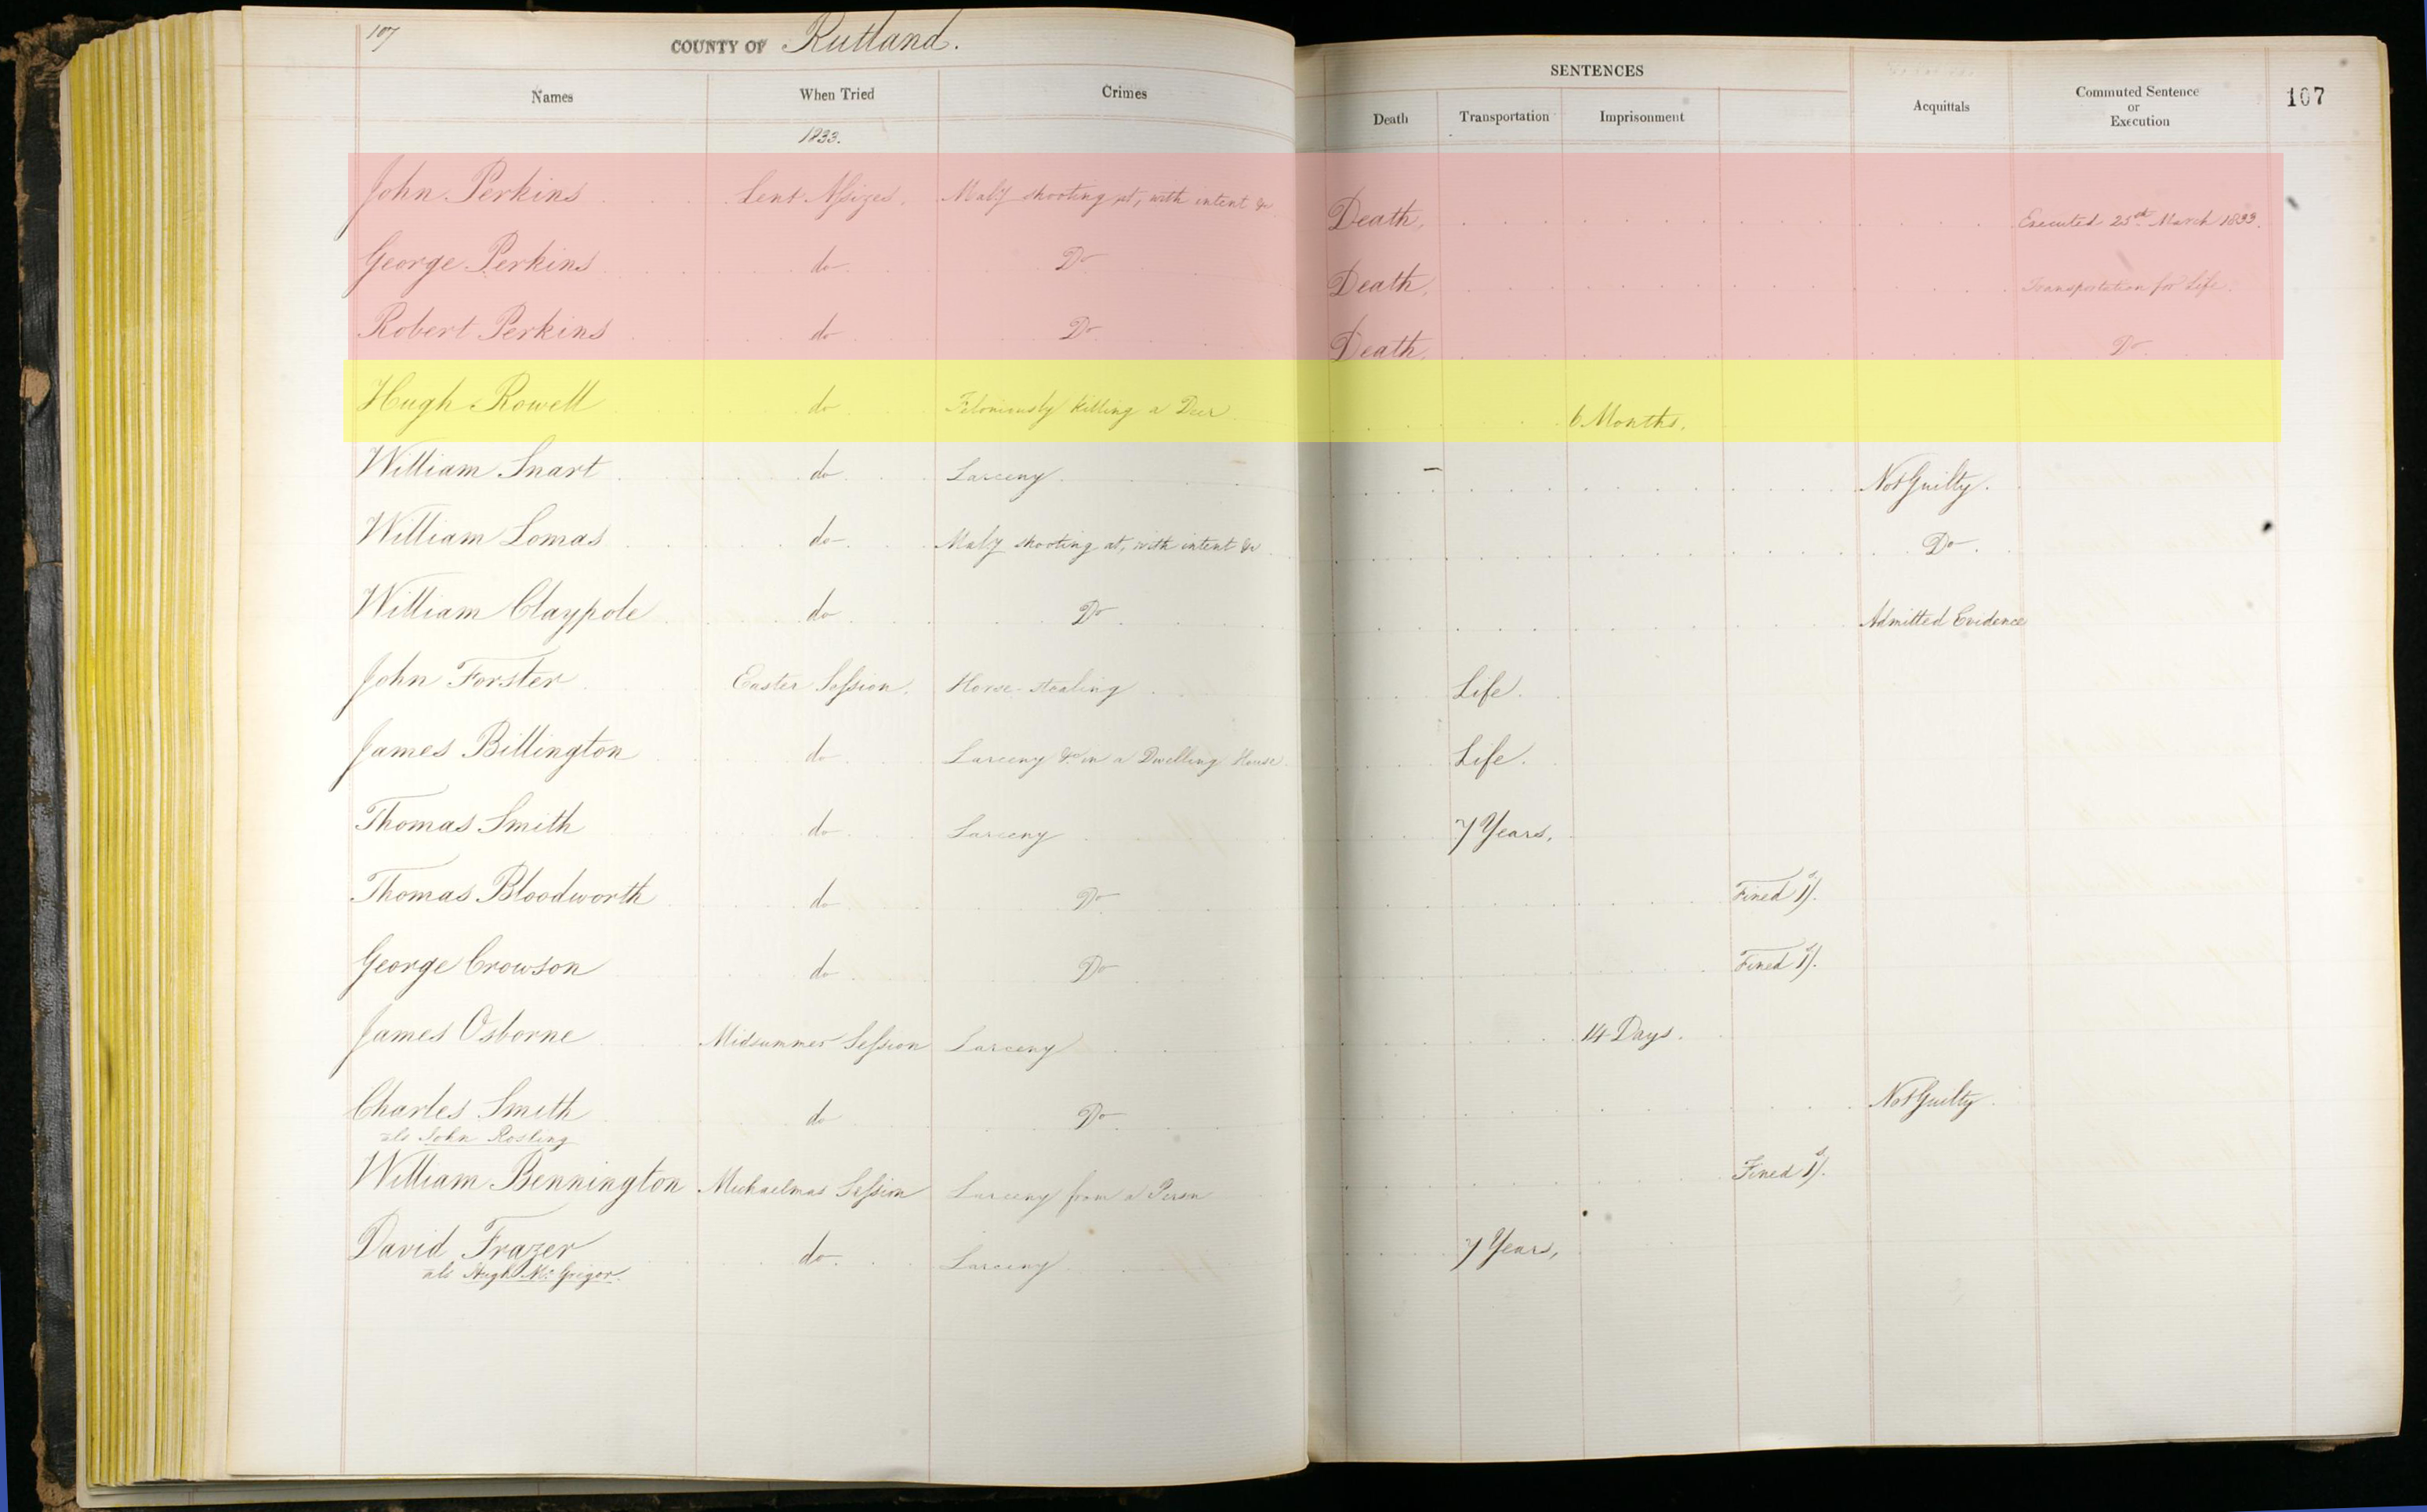 107
COUNTY OF Rutland.
SENTENCES
Names When Tried Crimes Death Transportation Imprisonment Acquittals Commuted Sentence or Execution 107
1833.
John Perkins Lent Assizes. Maly shooting at, with intent &c Death, Executed 25th March 1833.
George Perkins do Do Death, Transportation for Life.
Robert Perkins do Do Death, Do
Hugh Rowell do Feloniously killing a Deer 6 Months.
William Snart do Larceny Not Guilty.
William Lomas do Maly shooting at, with intent &c Do.
William Claypole do Do Admitted Evidence
John Forster Easter Session. Horse-stealing Life.
James Billington do Larceny &c in a Dwelling House Life.
Thomas Smith do Larceny 7 Years.
Thomas Bloodworth do Do Fined 1s/.
George Crowson do Do Fined 1s/.
James Osborne Midsummer Session Larceny 14 Days.
Charles Smith do Do Not Guilty.
als John Rosling
William Bennington Michaelmas Session Larceny from a Person Fined 1s/.
David Frazer do. Larceny 7 Years,
als Hugh Mc Gregor.